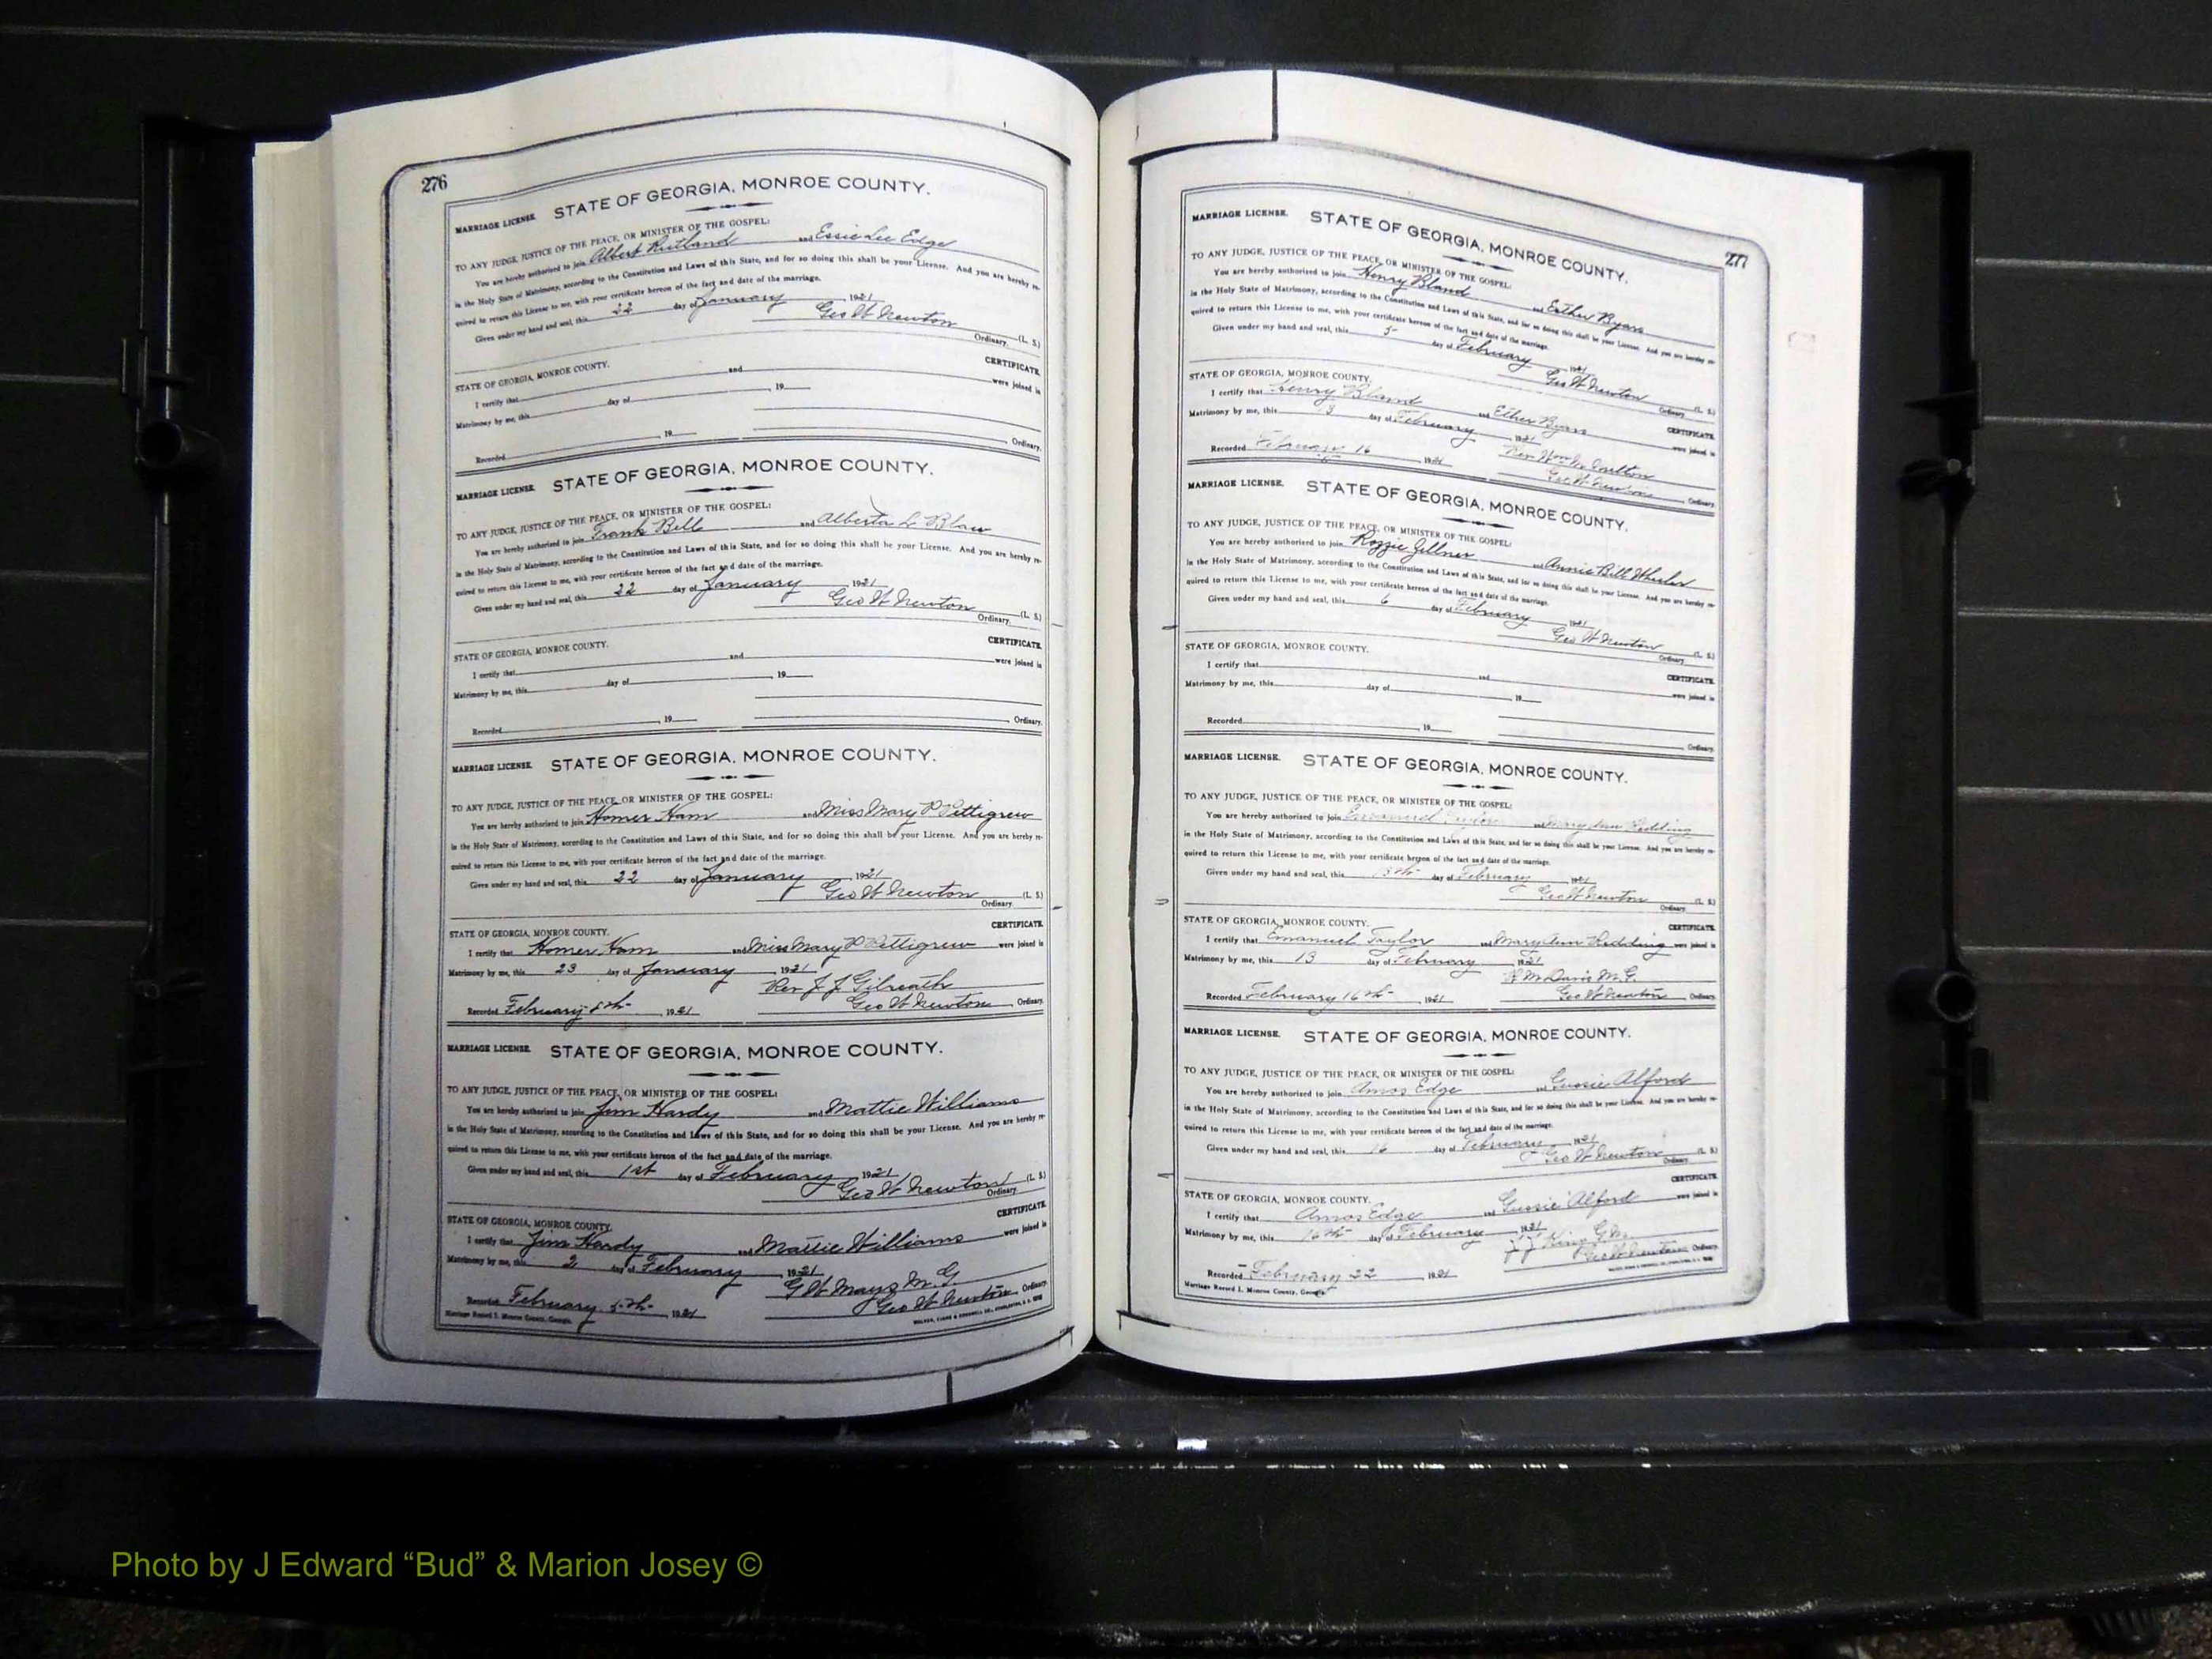 276
MARRIAGE LICENSE. STATE OF GEORGIA, MONROE COUNTY.
TO ANY JUDGE, JUSTICE OF THE PEACE, OR MINISTER OF THE GOSPEL:
You are hereby authorized to join Albert Rutland and Essie Lee Edge
in the Holy State of Matrimony, according to the Constitution and Laws of this State, and for so doing this shall be your License. And you are hereby re-
quired to return this License to me, with your certificate hereon of the fact and date of the marriage.
Given under my hand and seal, this 22 day of January, 1921
Geo W Newton (L. S.)
Ordinary.
CERTIFICATE.
STATE OF GEORGIA, MONROE COUNTY.
I certify that and were joined in
Matrimony by me, this day of , 19
Recorded , 19 Ordinary.
MARRIAGE LICENSE. STATE OF GEORGIA, MONROE COUNTY.
TO ANY JUDGE, JUSTICE OF THE PEACE, OR MINISTER OF THE GOSPEL:
You are hereby authorized to join Frank Bell and Alberta L
in the Holy State of Matrimony, according to the Constitution and Laws of this State, and for so doing this shall be your License. And you are hereby re-
quired to return this License to me, with your certificate hereon of the fact and date of the marriage.
Given under my hand and seal, this 22 day of January, 1921
Geo W Newton (L. S.)
Ordinary.
CERTIFICATE.
STATE OF GEORGIA, MONROE COUNTY.
I certify that and were joined in
Matrimony by me, this day of , 19
Recorded , 19 Ordinary.
MARRIAGE LICENSE. STATE OF GEORGIA, MONROE COUNTY.
TO ANY JUDGE, JUSTICE OF THE PEACE, OR MINISTER OF THE GOSPEL:
You are hereby authorized to join Homer Ham and Miss Mary P Pettigrew
in the Holy State of Matrimony, according to the Constitution and Laws of this State, and for so doing this shall be your License. And you are hereby re-
quired to return this License to me, with your certificate hereon of the fact and date of the marriage.
Given under my hand and seal, this 22 day of January, 1921
Geo W Newton (L. S.)
Ordinary.
CERTIFICATE.
STATE OF GEORGIA, MONROE COUNTY.
I certify that Homer Ham and Miss Mary P Pettigrew were joined in
Matrimony by me, this 23 day of January, 1921
Rev J J Gilreath
Recorded February 8th, 1921 Geo W Newton, Ordinary.
MARRIAGE LICENSE. STATE OF GEORGIA, MONROE COUNTY.
TO ANY JUDGE, JUSTICE OF THE PEACE, OR MINISTER OF THE GOSPEL:
You are hereby authorized to join Jim Hardy and Mattie Williams
in the Holy State of Matrimony, according to the Constitution and Laws of this State, and for so doing this shall be your License. And you are hereby re-
quired to return this License to me, with your certificate hereon of the fact and date of the marriage.
Given under my hand and seal, this 1st day of February, 1921
Geo W Newton (L. S.)
Ordinary.
CERTIFICATE.
STATE OF GEORGIA, MONROE COUNTY.
I certify that Jim Hardy and Mattie Williams were joined in
Matrimony by me, this 2 day of February, 1921
G W Mays M. G
Recorded February 5th, 1921 Geo W Newton, Ordinary.
Marriage Record I. Monroe County, Georgia.
277
MARRIAGE LICENSE. STATE OF GEORGIA, MONROE COUNTY.
TO ANY JUDGE, JUSTICE OF THE PEACE, OR MINISTER OF THE GOSPEL:
You are hereby authorized to join Henry Bland and Esther Byars
in the Holy State of Matrimony, according to the Constitution and Laws of this State, and for so doing this shall be your License. And you are hereby re-
quired to return this License to me, with your certificate hereon of the fact and date of the marriage.
Given under my hand and seal, this 5 day of February, 1921
Geo W Newton (L. S.)
Ordinary.
CERTIFICATE.
STATE OF GEORGIA, MONROE COUNTY.
I certify that Henry Bland and Ether Byars were joined in
Matrimony by me, this 13 day of February, 1921
Rev
Recorded February 16, 1921 Geo W Newton, Ordinary.
MARRIAGE LICENSE. STATE OF GEORGIA, MONROE COUNTY.
TO ANY JUDGE, JUSTICE OF THE PEACE, OR MINISTER OF THE GOSPEL:
You are hereby authorized to join Rozzie and Annie Bill Wheeler
in the Holy State of Matrimony, according to the Constitution and Laws of this State, and for so doing this shall be your License. And you are hereby re-
quired to return this License to me, with your certificate hereon of the fact and date of the marriage.
Given under my hand and seal, this 6 day of February, 1921
Geo W Newton (L. S.)
Ordinary.
CERTIFICATE.
STATE OF GEORGIA, MONROE COUNTY.
I certify that and were joined in
Matrimony by me, this day of , 19
Recorded , 19 Ordinary.
MARRIAGE LICENSE. STATE OF GEORGIA, MONROE COUNTY.
TO ANY JUDGE, JUSTICE OF THE PEACE, OR MINISTER OF THE GOSPEL:
You are hereby authorized to join Emanuel Taylor and Mary Ann Redding
in the Holy State of Matrimony, according to the Constitution and Laws of this State, and for so doing this shall be your License. And you are hereby re-
quired to return this License to me, with your certificate hereon of the fact and date of the marriage.
Given under my hand and seal, this day of February, 1921
Geo W Newton (L. S.)
Ordinary.
CERTIFICATE.
STATE OF GEORGIA, MONROE COUNTY.
I certify that Emanuel Taylor and Mary Ann Redding were joined in
Matrimony by me, this 13 day of February, 1921
M Davis M. G.
Recorded February 16th, 1921 Geo W Newton, Ordinary.
MARRIAGE LICENSE. STATE OF GEORGIA, MONROE COUNTY.
TO ANY JUDGE, JUSTICE OF THE PEACE, OR MINISTER OF THE GOSPEL:
You are hereby authorized to join Amos Edge and Gussie Alford
in the Holy State of Matrimony, according to the Constitution and Laws of this State, and for so doing this shall be your License. And you are hereby re-
quired to return this License to me, with your certificate hereon of the fact and date of the marriage.
Given under my hand and seal, this 16 day of February, 1921
Geo W Newton (L. S.)
Ordinary.
CERTIFICATE.
STATE OF GEORGIA, MONROE COUNTY.
I certify that Amos Edge and Gussie Alford were joined in
Matrimony by me, this 16th day of February, 1921
J J King G. M.
Recorded February 22, 1921 Geo W Newton, Ordinary.
Marriage Record I. Monroe County, Georgia
Photo by J Edward “Bud” & Marion Josey ©